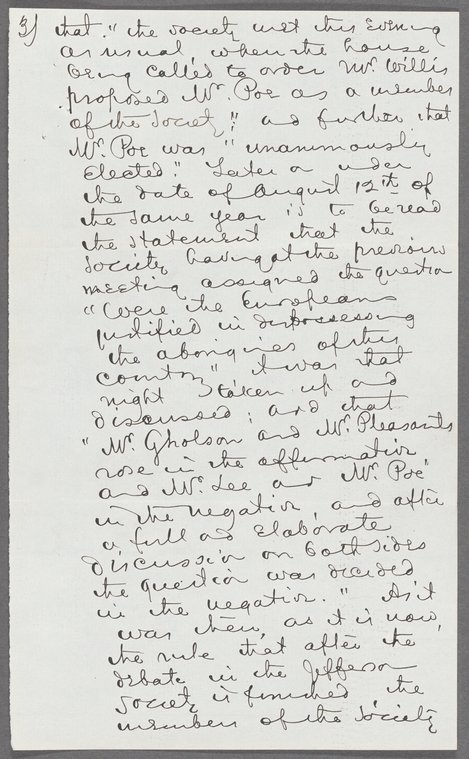 3) that. "the society met this Evening
as usual, when the house
being called to order Mr. Willis
proposed Mr. Poe as a member
of the Society;" and further that
Mr. Poe was "unanimously
Elected." Later or under
the date of August 12th of
the same year is to be read
the statement that the
society having at the previous
meeting assigned the question
"Were the Europeans
justified in dispossessing
the aborigines of this
country" it was that
night taken up and
discussed; and that
"Mr. Gholson and Mr. Pleasants
rose in the affirmative
and Mr. Lee and Mr. Poe"
in the negative, and after
a full and Elaborate
discussion on both sides
the question was decided
in the negative." As it
was then, as it is now,
the rule that after the
debate in the Jefferson
Society is finished the
members of the Society